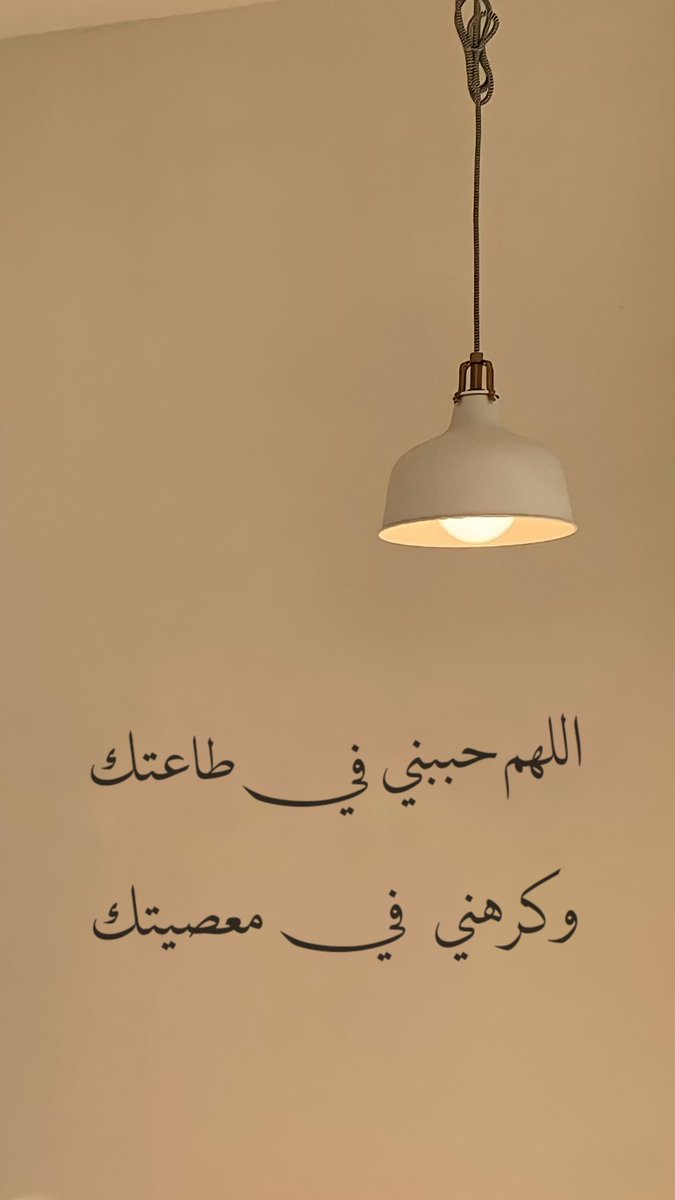 اللهم حببني في طاعتك
وكرهني في معصيتك